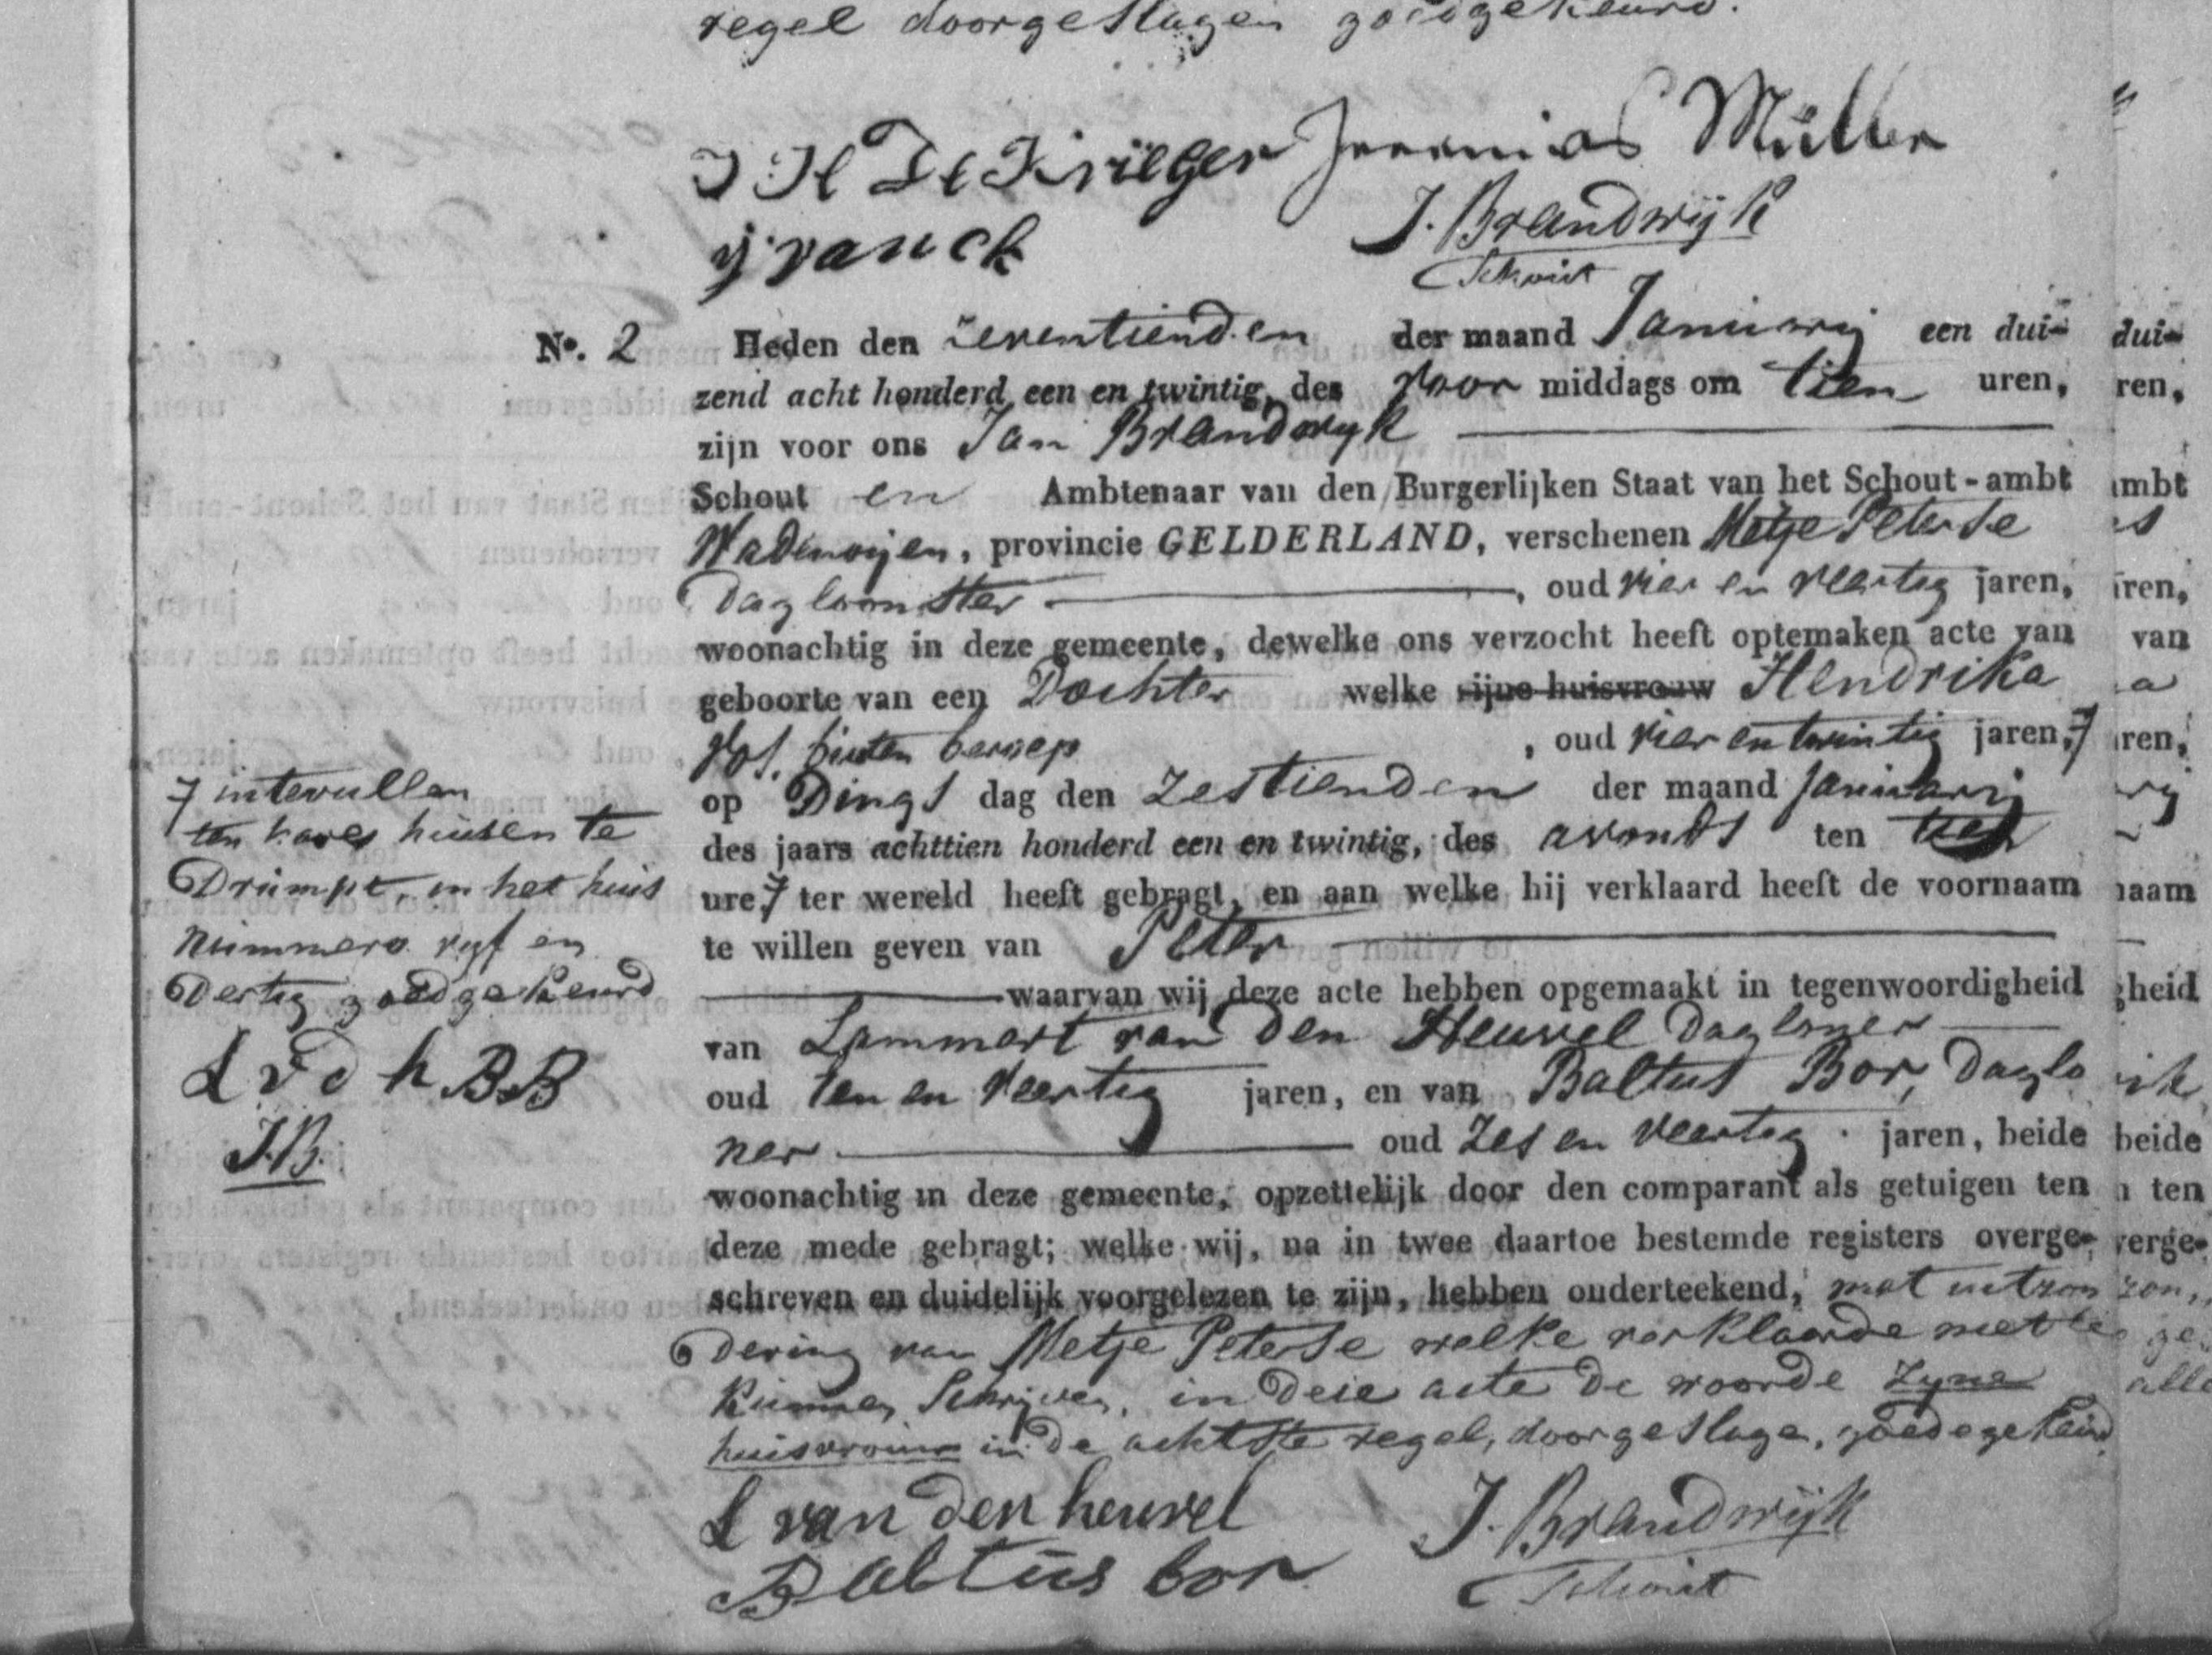 regel doorgeslagen goedgekeurd.
J H De Krieger Jeremias Müller
J. Brandwijk
Schout
No. 2 Heden den zeventienden der maand Januarij een dui-
zend acht honderd een en twintig, des voor middags om tien uren,
zijn voor ons Jan Brandwyk
Schout en Ambtenaar van den Burgerlijken Staat van het Schout-ambt
Wadenoijen, provincie GELDERLAND, verschenen Metje Peterse
Dagloonster, oud vier en veertig jaren,
woonachtig in deze gemeente, dewelke ons verzocht heeft optemaken acte van
geboorte van een Dochter welke zijne huisvrouw Hendrika
Vos. buiten beroep, oud vier en twintig jaren,
op Dings dag den Zestienden der maand Januarij
des jaars achttien honderd een en twintig, des avonds ten tien
ure ter wereld heeft gebragt, en aan welke hij verklaard heeft de voornaam
te willen geven van Peter
waarvan wij deze acte hebben opgemaakt in tegenwoordigheid
van Lammert van den Heuvel Dagloner
oud een en veertig jaren, en van Baltus Bor, Daglo
ner oud Zes en veertig jaren, beide
woonachtig in deze gemeente, opzettelijk door den comparant als getuigen ten
deze mede gebragt; welke wij, na in twee daartoe bestemde registers overge-
schreven en duidelijk voorgelezen te zijn, hebben onderteekend, met uitzon
dering van Metje Peterse welke verklaarde niet te
kunnen Schrijven, in deze acte de woorde zyne
huisvrouw in de achtste regel, doorgeslage, goedgekeurd
L van den heuvel J. Brandwijk
Baltus bor Schout
intevullen
ten haren huisen te
Drumpt, in het huis
Nummero vyf en
Dertig goedgekeurd
L v d h BB
J.B.
dui-
ren,
ambt
ren,
van
a
ren,
naam
gheid
beide
ten
verge-
zon,